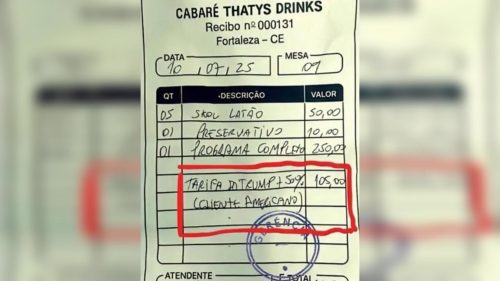 CABARÉ THATYS DRINKS
Recibo nº 000131
Fortaleza – CE
DATA MESA
10 , 07, 25 09
QT -DESCRIÇÃO VALOR
05 SKOL LATÃO 50,00
01 PRESERVATIVO 10,00
01 PROGRAMA COMPLETO 250,00
TARIFA DO TRUMP + 50% 105,00
(CLIENTE AMERICANO)
GERÊNCIA
ATENDENTE TOTAL